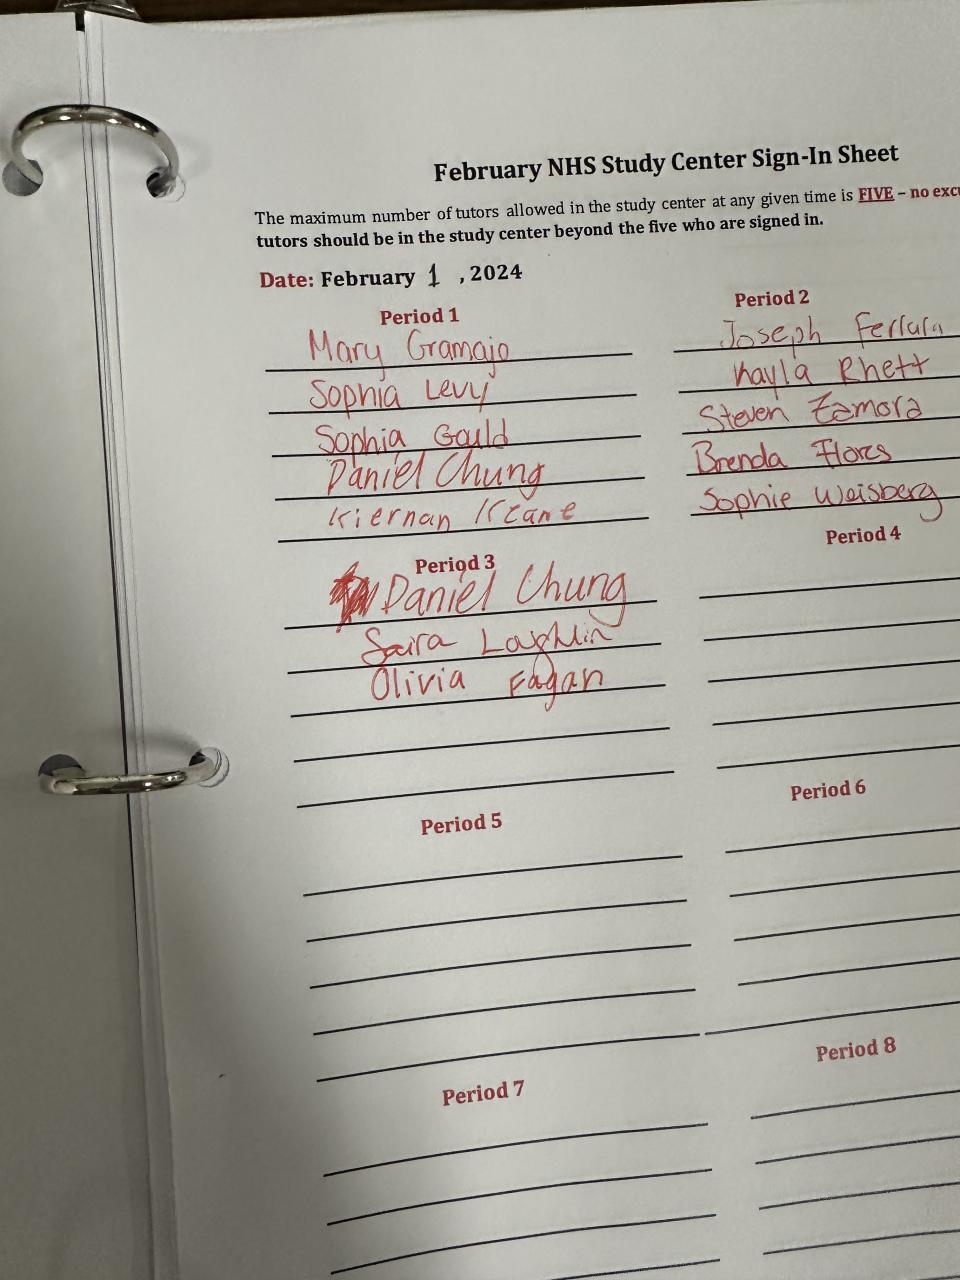 February NHS Study Center Sign-In Sheet
The maximum number of tutors allowed in the study center at any given time is FIVE – no
tutors should be in the study center beyond the five who are signed in.
Date: February 1 , 2024
Period 1
Mary Gramajo
Sophia Levy
Sophia Gould
Daniel Chung
Kiernan Keane
Period 2
Joseph Ferrara
Kayla Rhett
Steven Zamora
Brenda Flores
Sophie Weisberg
Period 3
Daniel Chung
Saira Loughlin
Olivia Fagan
Period 4
Period 5
Period 6
Period 7
Period 8